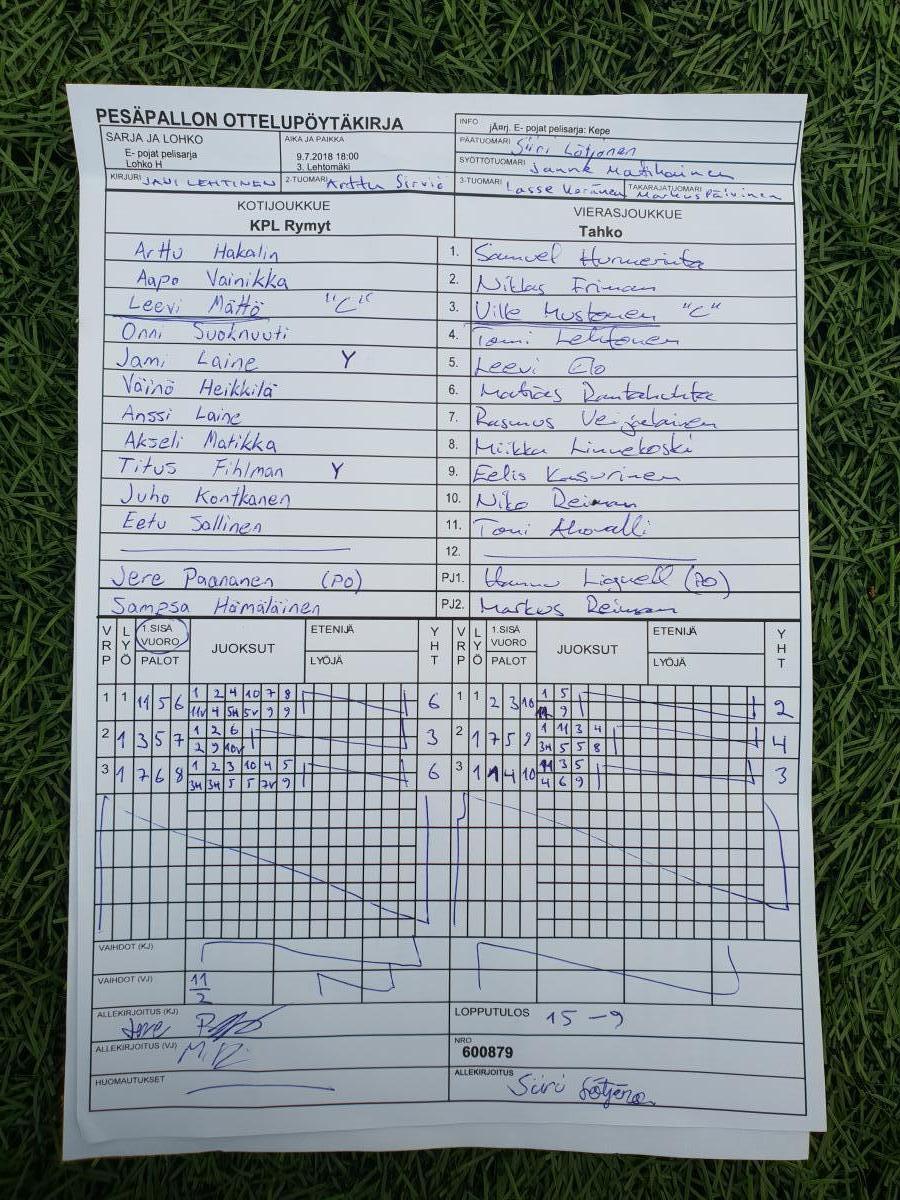 PESÄPALLON OTTELUPÖYTÄKIRJA
INFO jÄ¤rj. E- pojat pelisarja: Kepe
SARJA JA LOHKO
E- pojat pelisarja
Lohko H
AIKA JA PAIKKA
9.7.2018 18:00
3. Lehtomäki
PÄÄTUOMARI Siiri Lötjönen
SYÖTTÖTUOMARI Janne Matikainen
KIRJURI JANI LEHTINEN 2-TUOMARI Arttu Sirviö 3-TUOMARI Lasse Keränen TAKARAJATUOMARI Markus Päivinen
KOTIJOUKKUE VIERASJOUKKUE
KPL Rymyt Tahko
Arttu Hakalin 1. Samuel Hurmerinta
Aapo Vainikka 2. Niklas Friman
Leevi Mättö "C" 3. Ville Mustonen "C"
Onni Suoknuuti 4. Tomi Lehtonen
Jami Laine Y 5. Leevi Elo
Väinö Heikkilä 6. Matias Rantahuhta
Anssi Laine 7. Rasmus Veijalainen
Akseli Matikka 8. Miikka Linnekoski
Titus Fihlman Y 9. Eelis Kasurinen
Juho Kontkanen 10. Niko Reiman
Eetu Sallinen 11. Toni Ahovalli
12.
Jere Paananen (PO) PJ1. Hannu Liquell (PO)
Sampsa Hämäläinen PJ2. Markus Reiman
VRP LYÖ 1.SISÄ VUORO PALOT JUOKSUT ETENIJÄ LYÖJÄ YHT VRP LYÖ 1-SISÄ VUORO PALOT JUOKSUT ETENIJÄ LYÖJÄ YHT
1 1 11 5 6 1 2 4 10 7 8 6 1 1 2 3 10 1 5 2
11v 4 5H 5v 9 9 9
2 1 3 5 7 1 2 6 3 2 1 7 5 9 1 11 3 4 4
2 9 10v 3H 5 5 8
3 1 7 6 8 1 2 3 10 4 5 6 3 1 1 4 10 11 3 5 3
3H 3H 5 5 7v 9 4 6 9
VAIHDOT (KJ)
VAIHDOT (VJ) 11
2
ALLEKIRJOITUS (KJ) Jere LOPPUTULOS 15 - 9
ALLEKIRJOITUS (VJ) NRO
600879
HUOMAUTUKSET ALLEKIRJOITUS Siiri Lötjönen